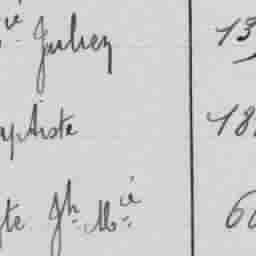 ié Julien 13
aptiste 18
te Jh Mié 60